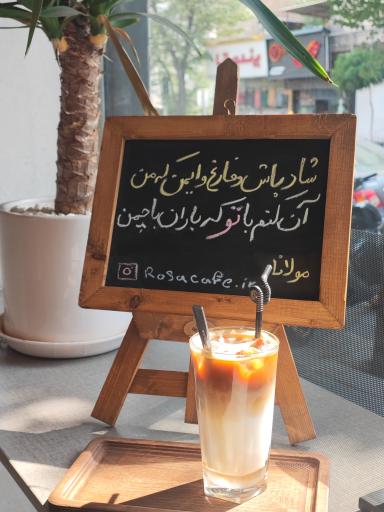 شاد باش و فارغ و ایمن که من
آن کنم با تو که باران با چمن
مولانا
Rosacafe.ir